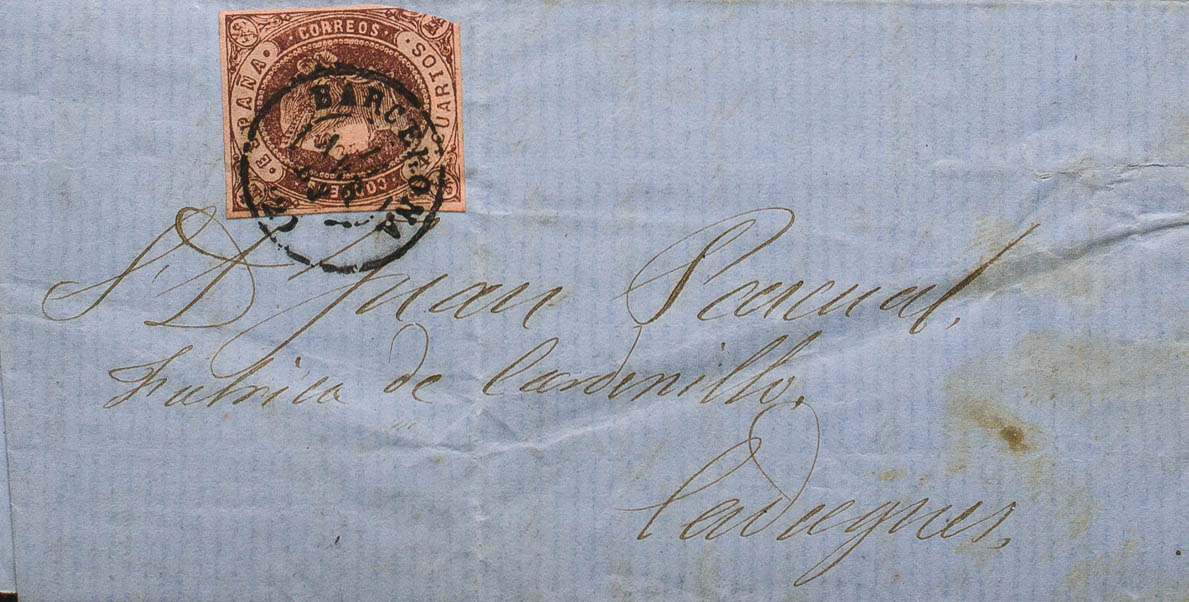 CORREOS
ESPAÑA
CUARTOS
BARCELONA
S. D. Juan Pascual.
Fabrica de Cardenillo.
Cadaques,